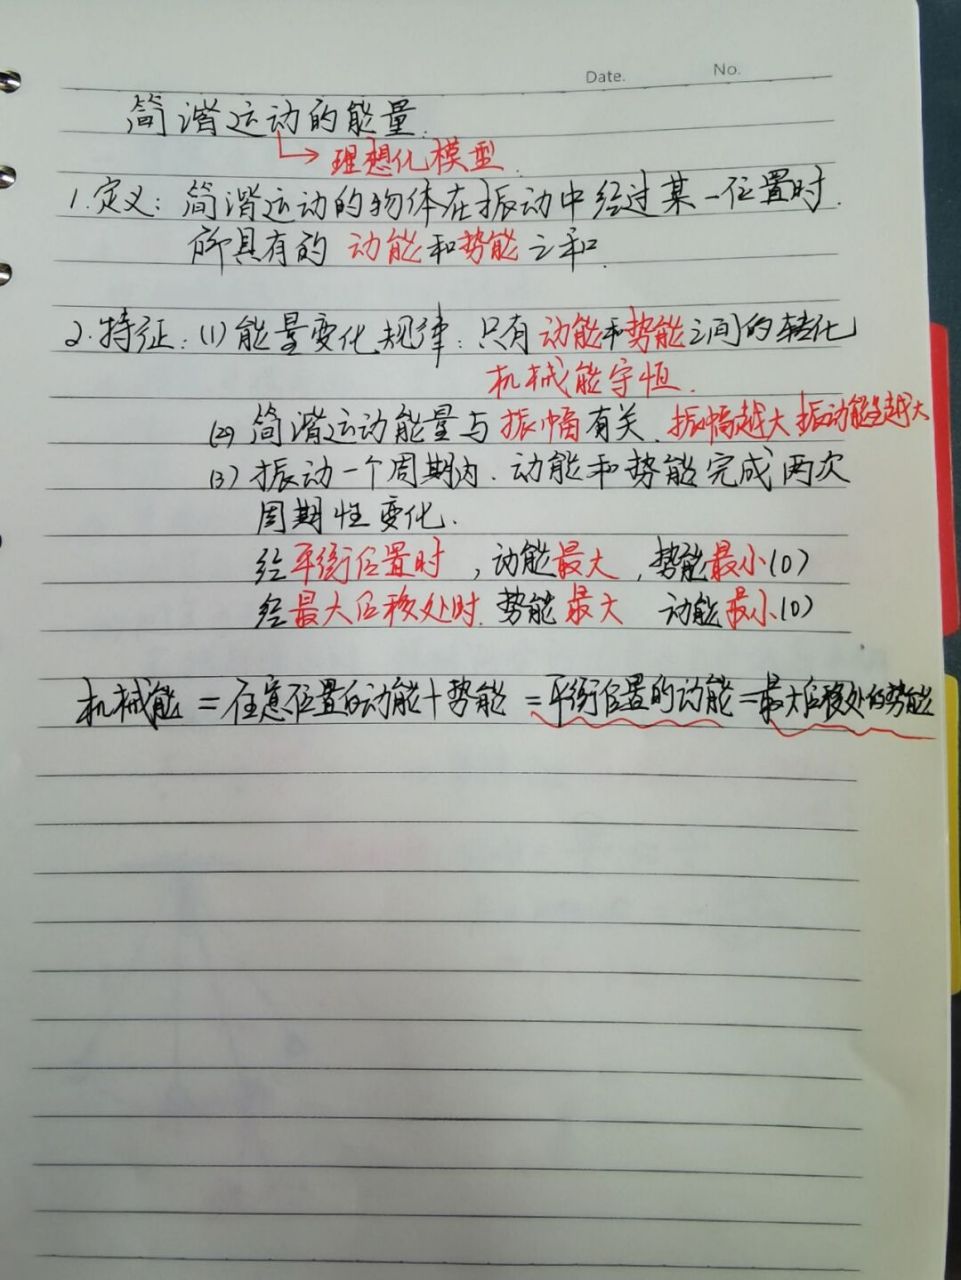 Date. No.
简谐运动的能量.
→理想化模型.
1.定义:简谐运动的物体在振动中经过某一位置时.
所具有的 动能和势能之和.
2.特征:(1)能量变化规律:只有动能和势能之间的转化
机械能守恒.
(2) 简谐运动能量与振幅有关.振幅越大振动能量越大
(3) 振动一个周期内.动能和势能完成两次
周期性变化.
经平衡位置时,动能最大,势能最小(0)
经最大位移处时.势能最大 动能最小(0)
机械能=任意位置的动能+势能=平衡位置的动能=最大位移处的势能